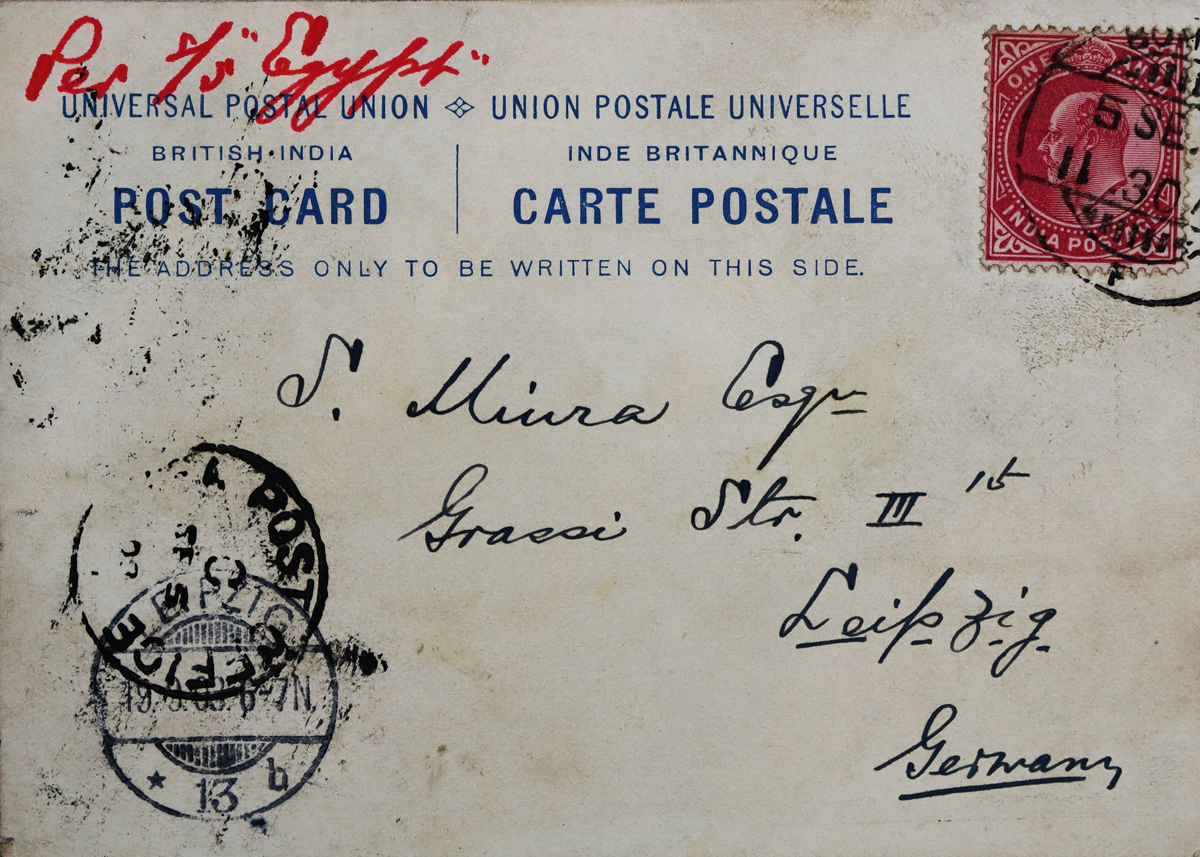 Per S/S "Egypt"
UNIVERSAL POSTAL UNION UNION POSTALE UNIVERSELLE
BRITISH INDIA INDE BRITANNIQUE
POST CARD CARTE POSTALE
THE ADDRESS ONLY TO BE WRITTEN ON THIS SIDE.
ONE
INDIA POSTAGE
5 SE
11 30
S. Miura Esqr
Grassi Str. III
Leipzig.
Germany
POST OFFICE
LEIPZIG
13 b